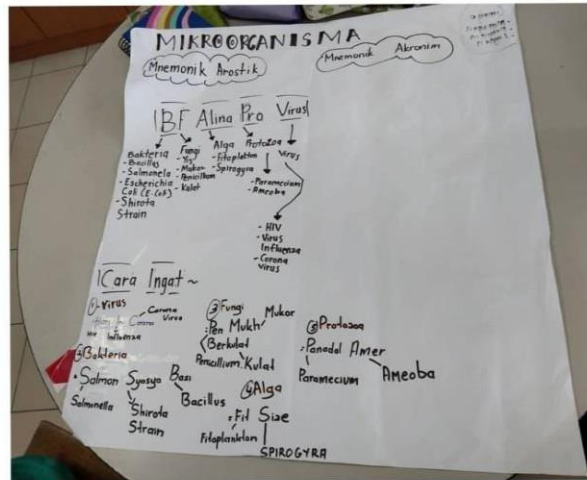 MIKROORGANISMA
Mnemonik Arostik
Mnemonik Akronim
BF Alina Pro Virus
Bakteria
- Bacillus
- Salmonela
- Escherichia
Coli (E.Coli)
- Shirota
Strain
Fungi
- Yis
- Mukor
- Penicillium
- Kulat
Alga
- Fitoplankton
- Spirogyra
Protozoa
- Paramecium
- Ameoba
Virus
- HIV
- Virus
Influenza
- Corona
virus
Cara Ingat ~
① Virus
Corona
Virus
Influenza
② Bakteria
• Salmon Syosyo Basi
Salmonella
Shirota
Strain
Bacillus
③ Fungi
: Pen Mukh
Mukor
Berkulat
Penicillium Kulat
④ Alga
: Fit Size
Fitoplankton
SPIROGYRA
⑤ Protozoa
: Panadol Amer
Paramecium
Ameoba